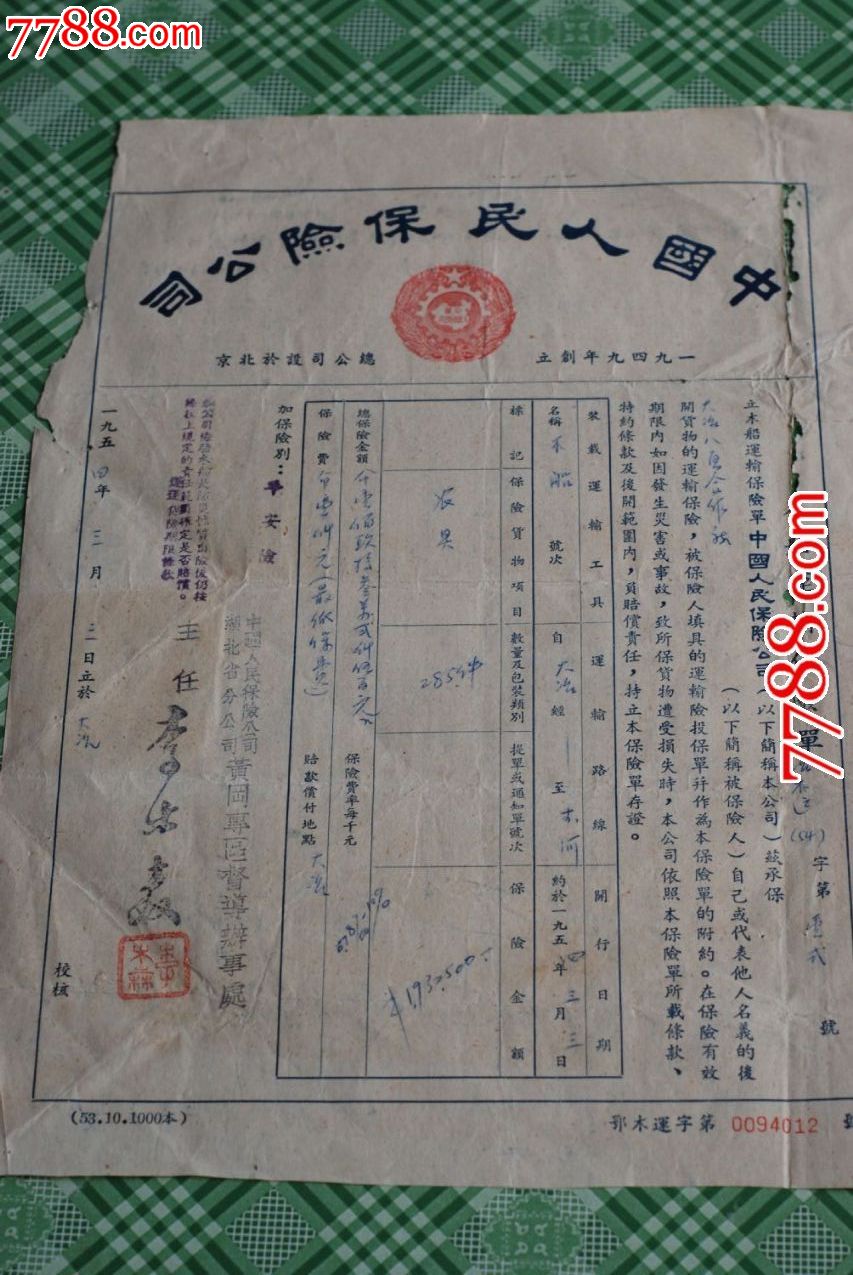 7788.com
中國人民保險公司
一九四九年創立
總公司設於北京
保單
字第
號
立木船運輸保險單中國人民保險公司(以下簡稱本公司)茲承保
大冶
(以下簡稱被保險人)自己或代表他人名義的後
開貨物的運輸保險,被保險人填具的運輸險投保單幷作為本保險單的附約。在保險有效
期限內如因發生災害或事故,致所保貨物遭受損失時,本公司依照本保險單所載條款、
特約條款及後開範圍內,負賠償責任,持立本保險單存證。
裝載運輸工具
運輸路線
開行日期
名稱 木船 號次
自 大冶 經 至 木河
約於一九五四年三月三日
標記
保險貨物項目
數量及包裝類別
提單或通知單號次
保險金額
農具
285件
¥1932500.-
總保險金額
保險費率每千元
保險費
賠款償付地點 大冶
加保險別:平安險
中國人民保險公司
湖北省分公司
黃岡專區督導辦事處
主任
一九五四年三月三日立於大冶
校核
(53.10.1000本)
鄂木運字第 0094012 號
7788.com